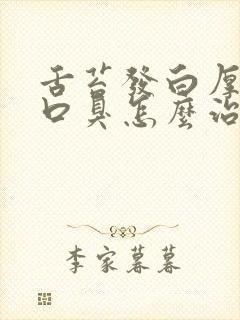 舌苔發白厚
口臭怎麼治
李家暮暮